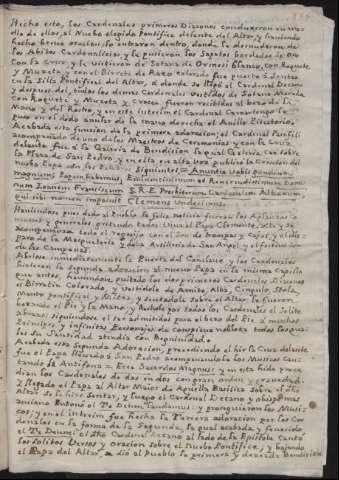 Hecho esto, los Cardenales primeros Diaconos conduxeron en me-
dio de ellos, al Nuebo elegido Pontifice delante del Altar, y haviendo
hecho breve oracion, lo entraron dentro, donde lo desnudaron de
los Abitos Cardenalicios, y le pusieron los Sapatos bordados de Oro
Con la Cruz, y le vistieron de Sotana de Ormesi blanco, con Roquete
y Muzeta, y con el Birrete de Raso colorado fue puesto dentro
en la Silla Pontifical del Altar, a donde se llegó el Cardenal Decano
y despues del, todos los demas Cardenales vestidos de Sotana Morada,
con Roquete y Muzeta, y Croçea fueron recibidos al beso de la
Mano y del Rostro, y en este interim el Cardenal Camarlengo le
puso en el dedo anular de la mano derecha el Anillo Piscatorio.
Acabada esta funcion de la primera adoracion, el Cardenal Panfili
acompañado de uno de los Maestros de Ceremonias y con la Cruz
delante fue a la Galeria de Bendicion la qual
la Plaza de San Pedro, y en ella en alta voz publico la Creacion del
nuebo Papa con las Palabras Siguientes = Anuntio Vobis gaudium
magnum; Papam habemus, Eminentissimum ac Reverendissimum Domi-
num Ioanem Franciscum S.R.E. Presbiterum Cardinalem Albanum,
qui sibi nomen imposuit Clemens Undecimus.
Haviendose pues dado al Pueblo la feliz noticia fueron los Aplausos
nuos y generales gritando todos Viva el Papa Clemente XI, y
acompañaron todo el regocijo con el son de trompas y Caxas, y el dis-
paro de la Mosqueteria y de la Artilleria de San Angel y el festivo son
de las Campanas.
Abriose inmediatamente la Puerta del Conclave, y los Cardenales
hicieron la Segunda adoracion al nuevo Papa en la misma capilla
que antes, haviendole quitado los dos primeros Cardenales Diaconos
el Birretin Colorado, y vestidole de Amito, Alba, Cingulo, Stola,
Manto pontifical, y Mitra, y sentadole sobre el Altar le fueron
besando el Pie y la Mano, y haviendo por todos los Cardenales el Solito
abrazo; siguiendose el ser admitidos para el beso del Pie a muchos
Principes y infinitos Personajes de conspicua nobleza todos los que
su Santidad atendia con Benignidad.
Acabada esta Segunda Adoracion, precediendo al hir la Cruz delante
fue el Papa llevado a San Pedro acompañandole los Musicos Can-
tando la Antifona = Ecce Sacerdos Magnus = y en esta hida prece-
dian los Cardenales de dos en dos con gran orden, y gravedad
y llegado el Papa al Altar Maior de Aquella Basilica sobre el dho
Altar se le hizo Sentar, y luego el Cardenal Decano y obispo mas
anciano Entonó el Te Deum Laudamus: y prosiguieron los Musi-
cos; y en el interim fue hecha la Tercera adoracion por los Car-
denales en la forma de la Segunda, la qual acabada y fenecido
el Te Deum; el dho Cardenal Decano al lado de la Epistola Cantó
los solitos Versos y oracion sobre el Nuebo Pontifice, y bajando
el Papa del Altar, dió al Pueblo la primera y deseada Bendicion